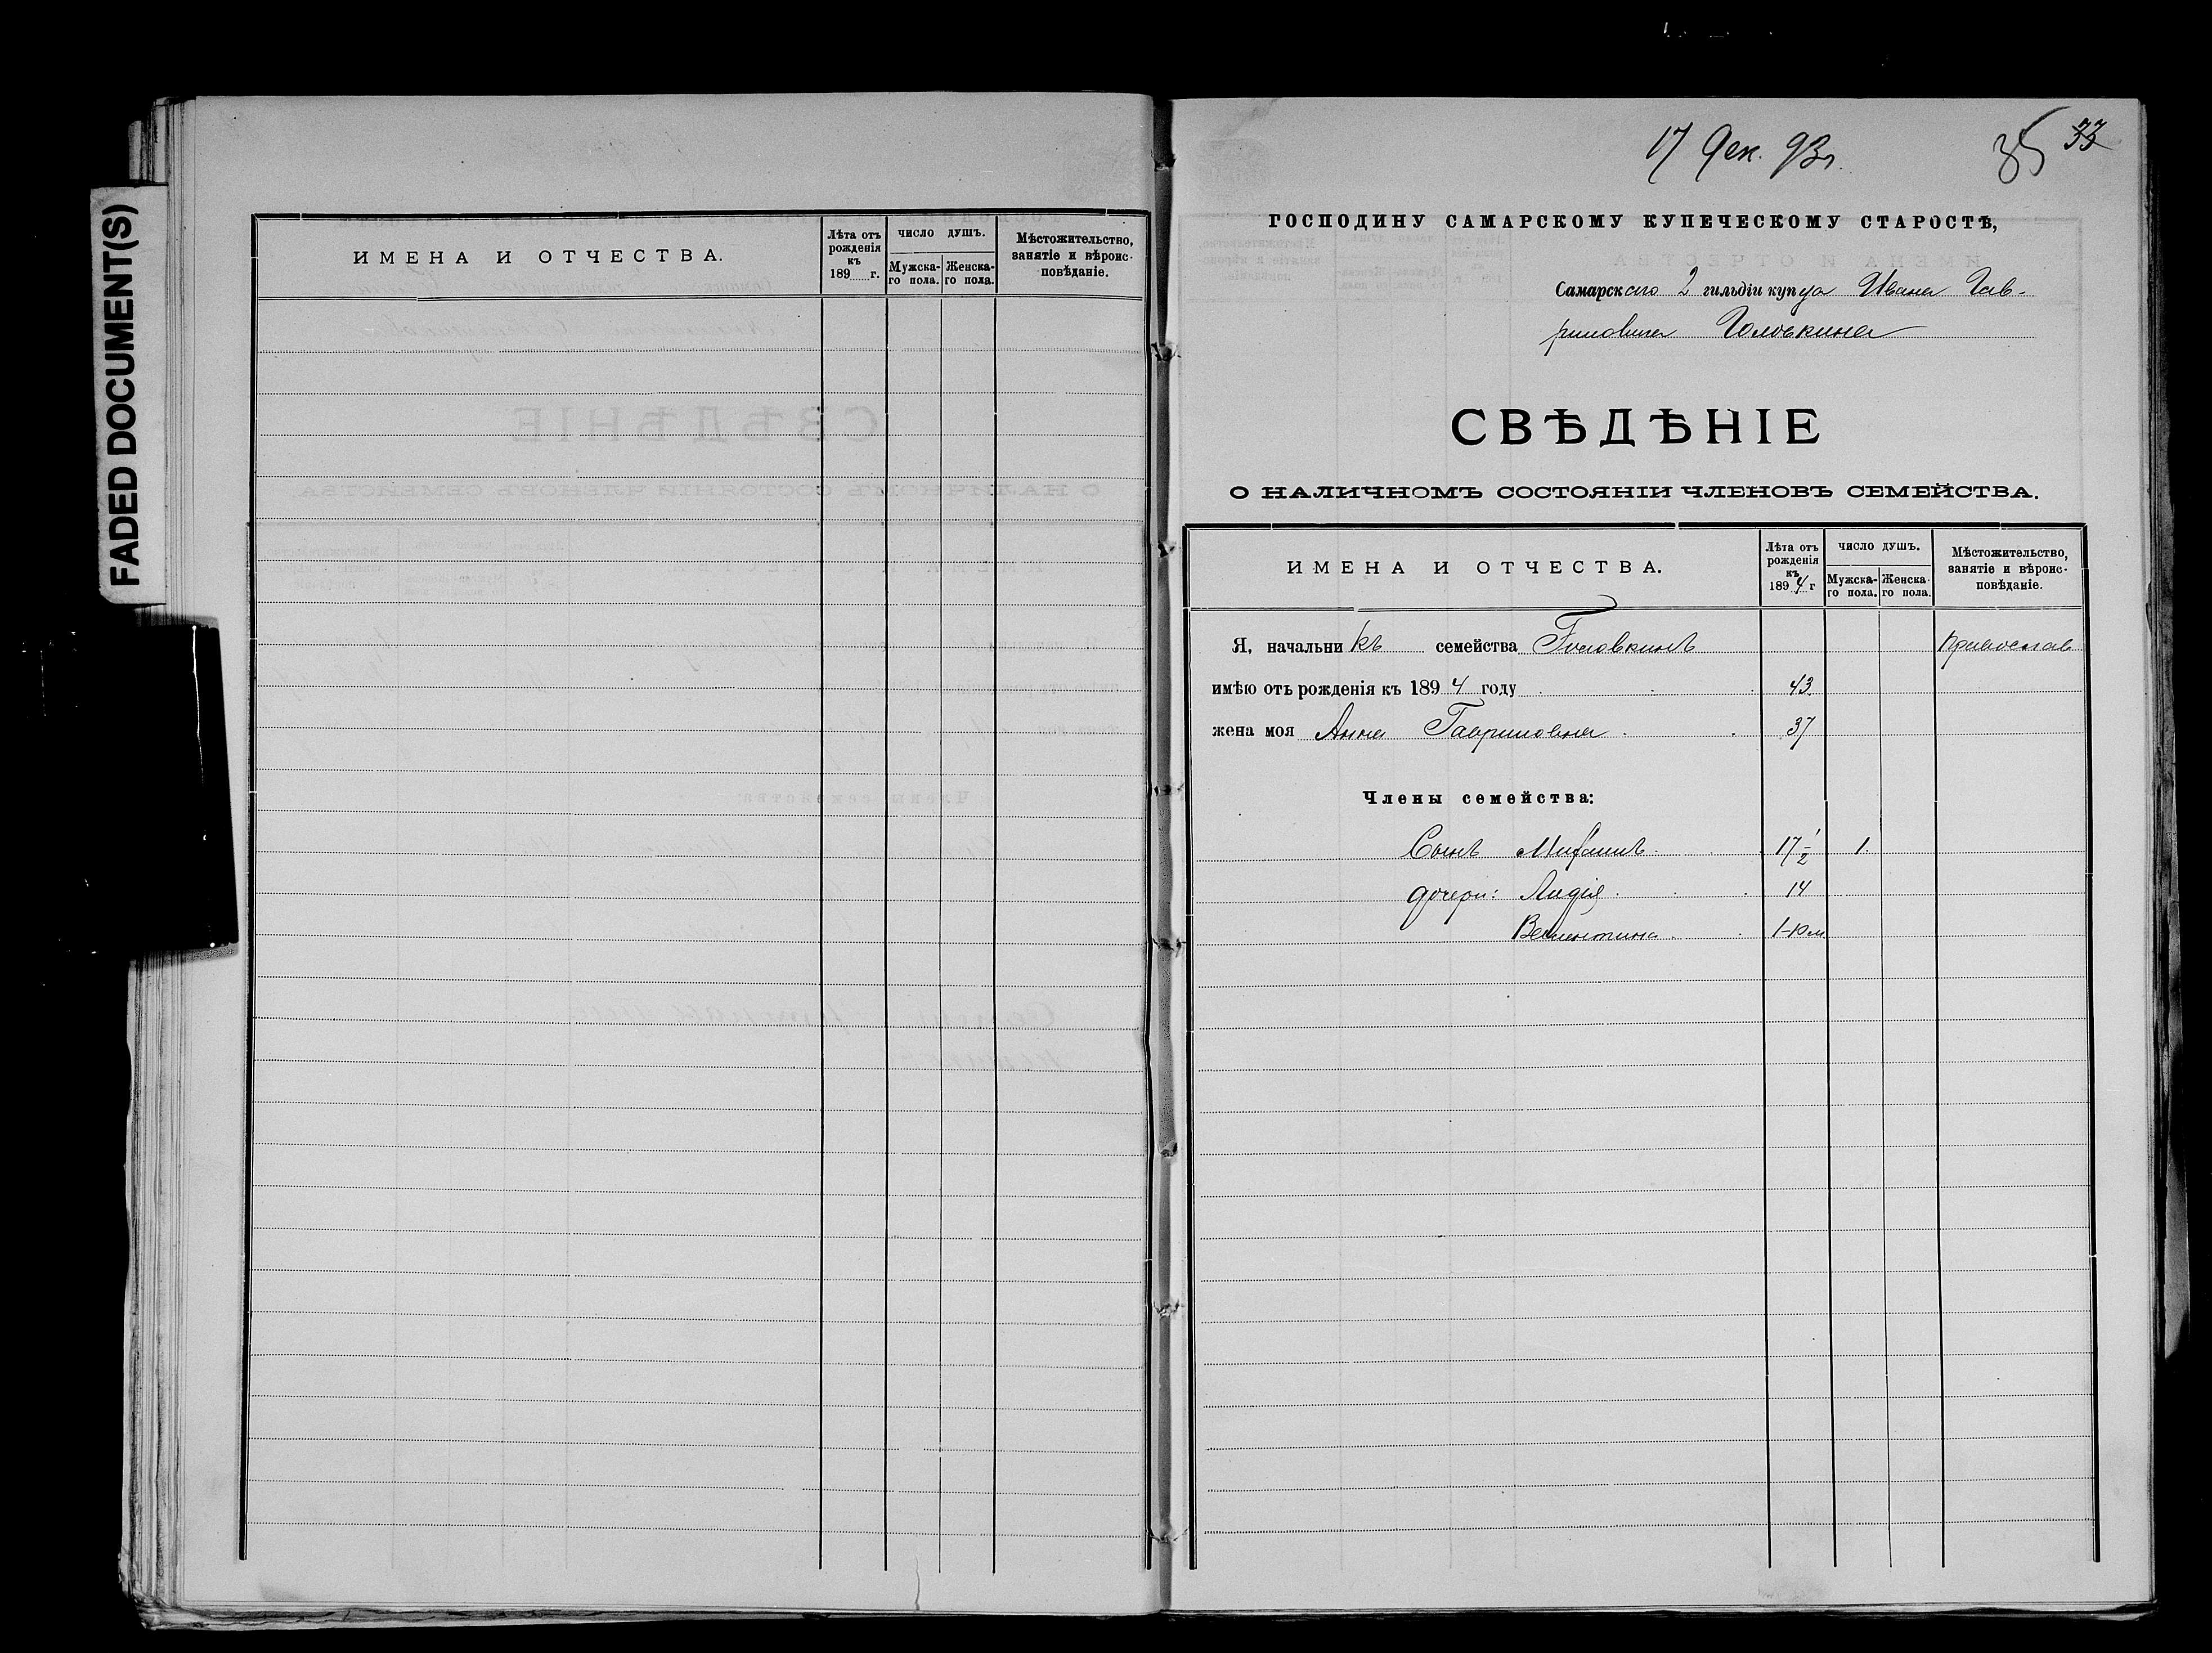 FADED DOCUMENT(S)
ИМЕНА И ОТЧЕСТВА.
Лѣта отъ рожденія къ 189 г.
число душъ.
Мужска- го пола.
Женска- го пола.
Мѣстожительство, занятіе и вѣроис- повѣданіе.
17 Дек. 93 г.
35 33
ГОСПОДИНУ САМАРСКОМУ КУПЕЧЕСКОМУ СТАРОСТѢ,
Самарскаго 2 гильдіи купца Ивана Гав-
риловича Головкина
СВѢДѢНІЕ
О НАЛИЧНОМЪ СОСТОЯНІИ ЧЛЕНОВЪ СЕМЕЙСТВА.
ИМЕНА И ОТЧЕСТВА.
Лѣта отъ рожденія къ 1894 г
число душъ.
Мужска- го пола.
Женска- го пола.
Мѣстожительство, занятіе и вѣроис- повѣданіе.
Я, начальникъ семейства Головкинъ Православ
имѣю отъ рожденія къ 1894 году 43
жена моя Анна Гавриловна 37
Члены семейства:
Сынъ 17 1/2 1.
дочери: Лидія 14
Валентина 1-10 м